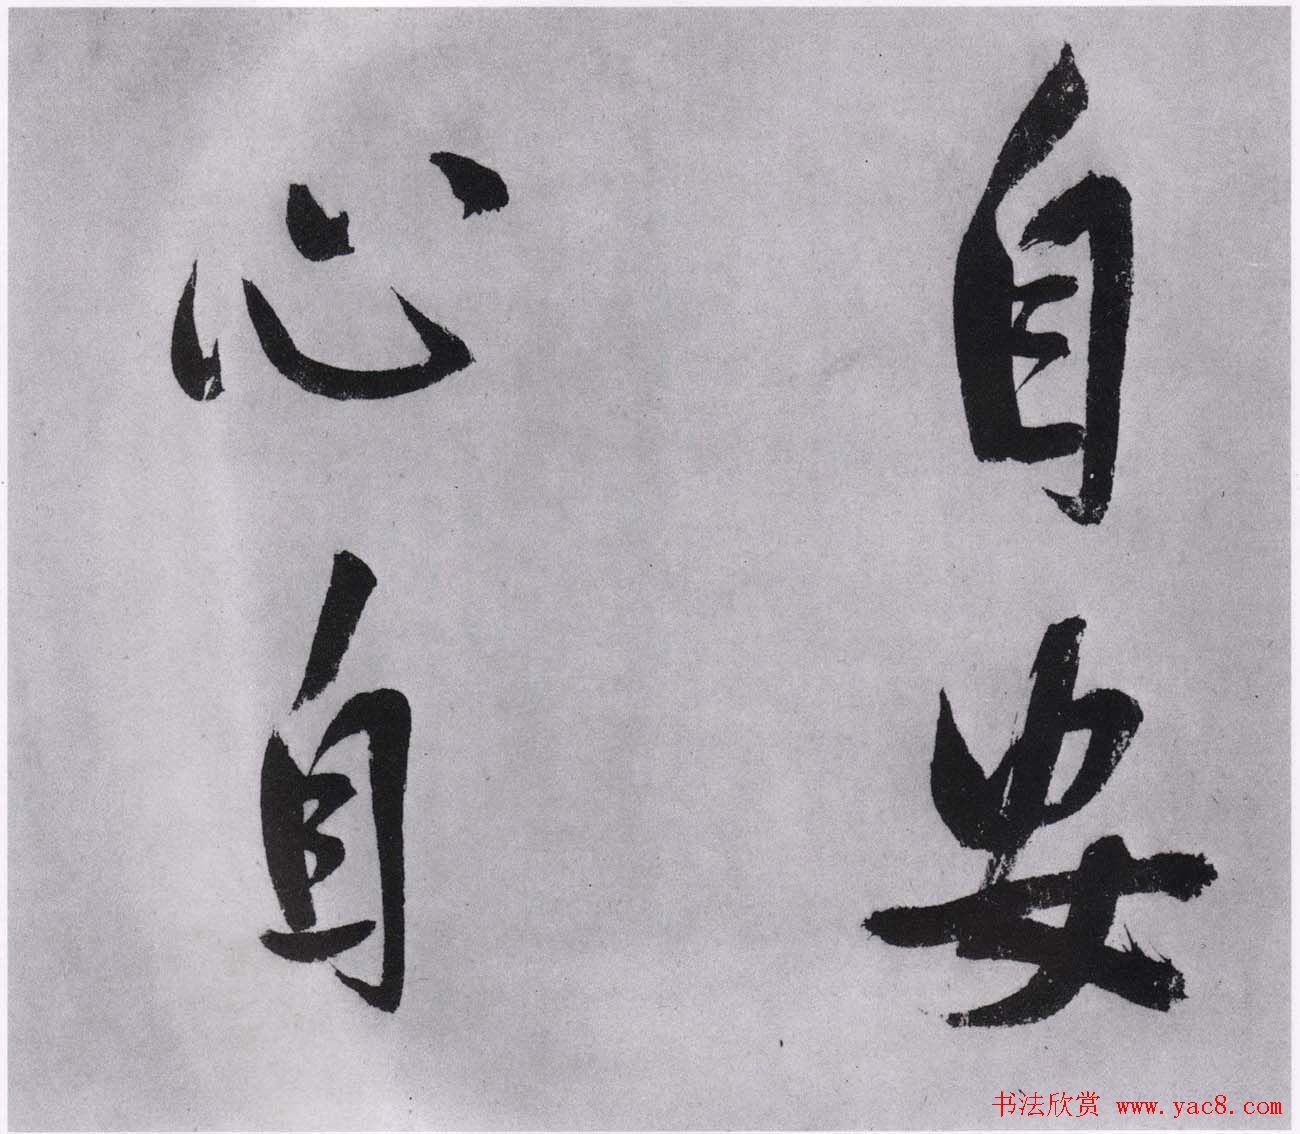 自安
心自
书法欣赏 www.yac8.com